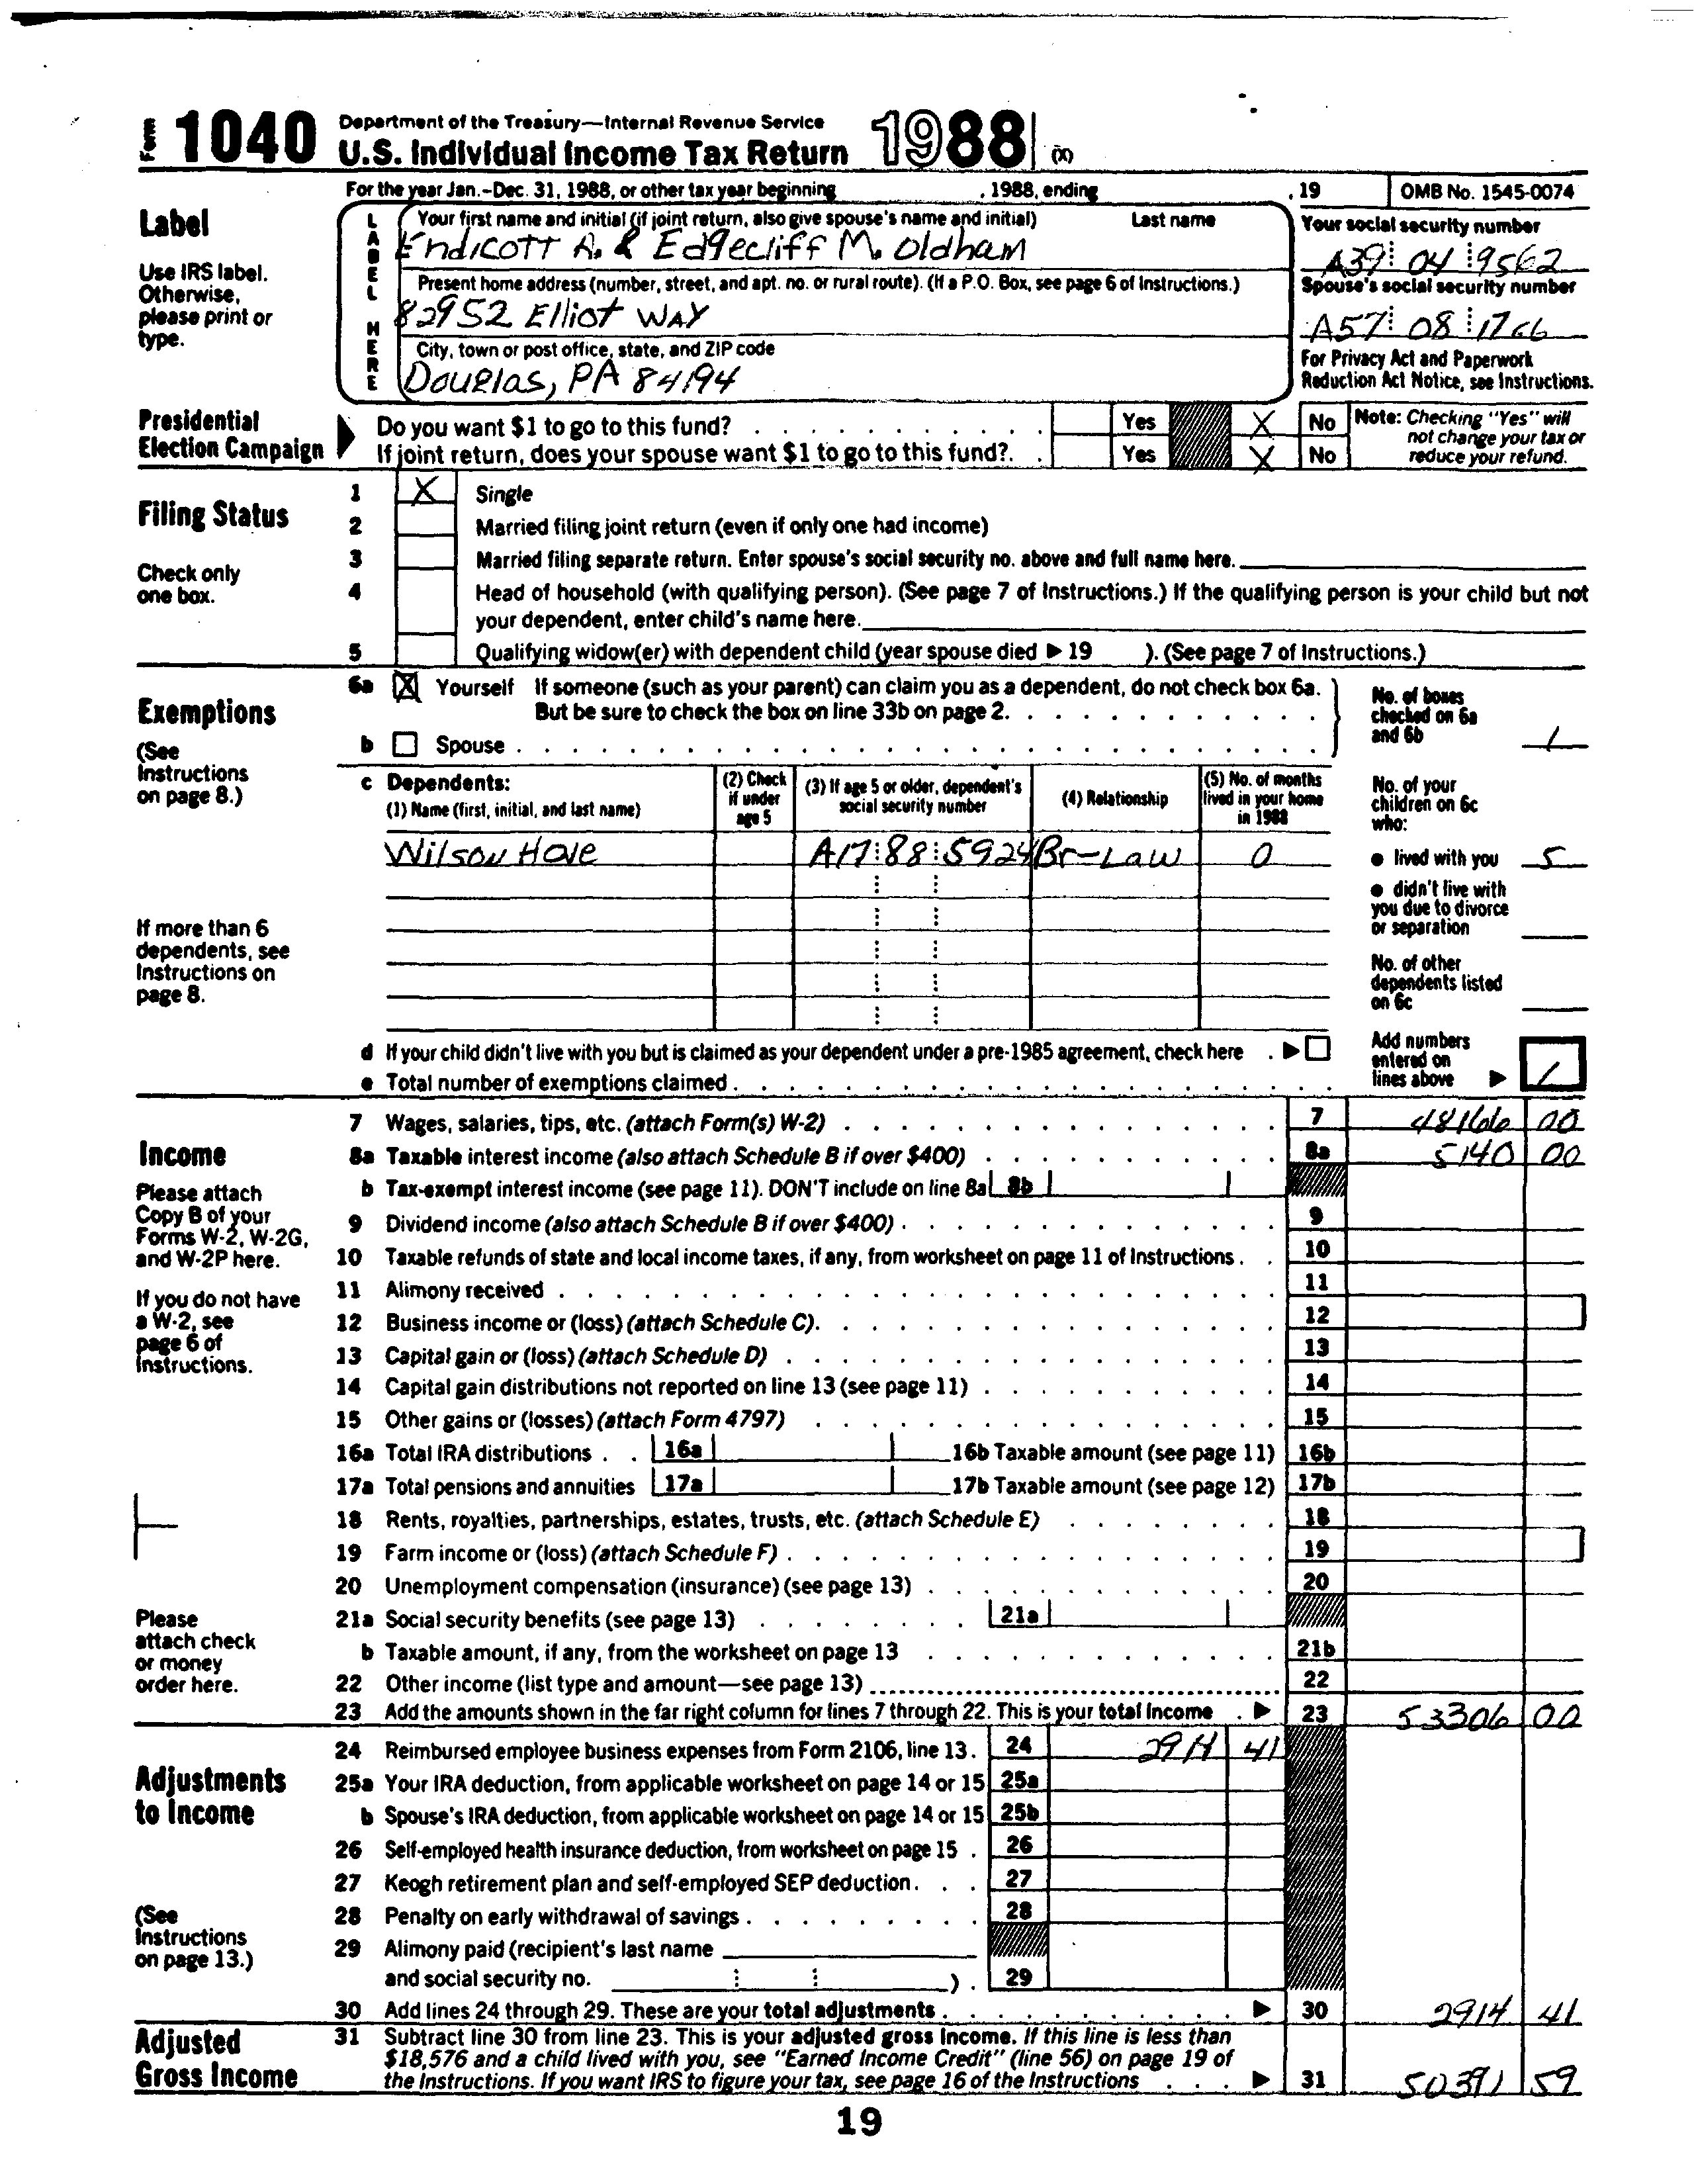 Form 1040 Department of the Treasury—Internal Revenue Service
U.S. Individual Income Tax Return 1988 (X)
For the year Jan.-Dec. 31, 1988, or other tax year beginning , 1988, ending , 19 OMB No. 1545-0074
Label
Use IRS label.
Otherwise,
please print or
type.
LABEL HERE
Your first name and initial (if joint return, also give spouse's name and initial) Last name
Endicott A. & Edgecliff M. Oldham
Present home address (number, street, and apt. no. or rural route). (If a P.O. Box, see page 6 of Instructions.)
82952 Elliot Way
City, town or post office, state, and ZIP code
Douglas, PA 84194
Your social security number
A39 04 9562
Spouse's social security number
A57 08 1766
For Privacy Act and Paperwork
Reduction Act Notice, see Instructions.
Presidential
Election Campaign
Do you want $1 to go to this fund? Yes X No
If joint return, does your spouse want $1 to go to this fund? Yes X No
Note: Checking "Yes" will
not change your tax or
reduce your refund.
Filing Status
Check only
one box.
1 X Single
2 Married filing joint return (even if only one had income)
3 Married filing separate return. Enter spouse's social security no. above and full name here.
4 Head of household (with qualifying person). (See page 7 of Instructions.) If the qualifying person is your child but not
your dependent, enter child's name here.
5 Qualifying widow(er) with dependent child (year spouse died ▶ 19 ). (See page 7 of Instructions.)
Exemptions
(See
Instructions
on page 8.)
6a X Yourself If someone (such as your parent) can claim you as a dependent, do not check box 6a.
But be sure to check the box on line 33b on page 2.
b Spouse
No. of boxes
checked on 6a
and 6b 1
c Dependents:
(1) Name (first, initial, and last name)
(2) Check
if under
age 5
(3) If age 5 or older, dependent's
social security number
(4) Relationship
(5) No. of months
lived in your home
in 1988
Wilson Hole A17 88 5924 Br-Law 0
If more than 6
dependents, see
Instructions on
page 8.
No. of your
children on 6c
who:
● lived with you 5
● didn't live with
you due to divorce
or separation
No. of other
dependents listed
on 6c
d If your child didn't live with you but is claimed as your dependent under a pre-1985 agreement, check here ▶
e Total number of exemptions claimed
Add numbers
entered on
lines above ▶ 1
Income
Please attach
Copy B of your
Forms W-2, W-2G,
and W-2P here.
If you do not have
a W-2, see
page 6 of
Instructions.
Please
attach check
or money
order here.
7 Wages, salaries, tips, etc. (attach Form(s) W-2) 7 48166 00
8a Taxable interest income (also attach Schedule B if over $400) 8a 5140 00
b Tax-exempt interest income (see page 11). DON'T include on line 8a 8b
9 Dividend income (also attach Schedule B if over $400) 9
10 Taxable refunds of state and local income taxes, if any, from worksheet on page 11 of Instructions 10
11 Alimony received 11
12 Business income or (loss) (attach Schedule C) 12
13 Capital gain or (loss) (attach Schedule D) 13
14 Capital gain distributions not reported on line 13 (see page 11) 14
15 Other gains or (losses) (attach Form 4797) 15
16a Total IRA distributions 16a 16b Taxable amount (see page 11) 16b
17a Total pensions and annuities 17a 17b Taxable amount (see page 12) 17b
18 Rents, royalties, partnerships, estates, trusts, etc. (attach Schedule E) 18
19 Farm income or (loss) (attach Schedule F) 19
20 Unemployment compensation (insurance) (see page 13) 20
21a Social security benefits (see page 13) 21a
b Taxable amount, if any, from the worksheet on page 13 21b
22 Other income (list type and amount—see page 13) 22
23 Add the amounts shown in the far right column for lines 7 through 22. This is your total income ▶ 23 53306 00
Adjustments
to Income
(See
Instructions
on page 13.)
24 Reimbursed employee business expenses from Form 2106, line 13. 24 2914 41
25a Your IRA deduction, from applicable worksheet on page 14 or 15 25a
b Spouse's IRA deduction, from applicable worksheet on page 14 or 15 25b
26 Self-employed health insurance deduction, from worksheet on page 15 26
27 Keogh retirement plan and self-employed SEP deduction 27
28 Penalty on early withdrawal of savings 28
29 Alimony paid (recipient's last name
and social security no. ) 29
30 Add lines 24 through 29. These are your total adjustments ▶ 30 2914 41
Adjusted
Gross Income
31 Subtract line 30 from line 23. This is your adjusted gross income. If this line is less than
$18,576 and a child lived with you, see "Earned Income Credit" (line 56) on page 19 of
the Instructions. If you want IRS to figure your tax, see page 16 of the Instructions ▶ 31 50391 59
19